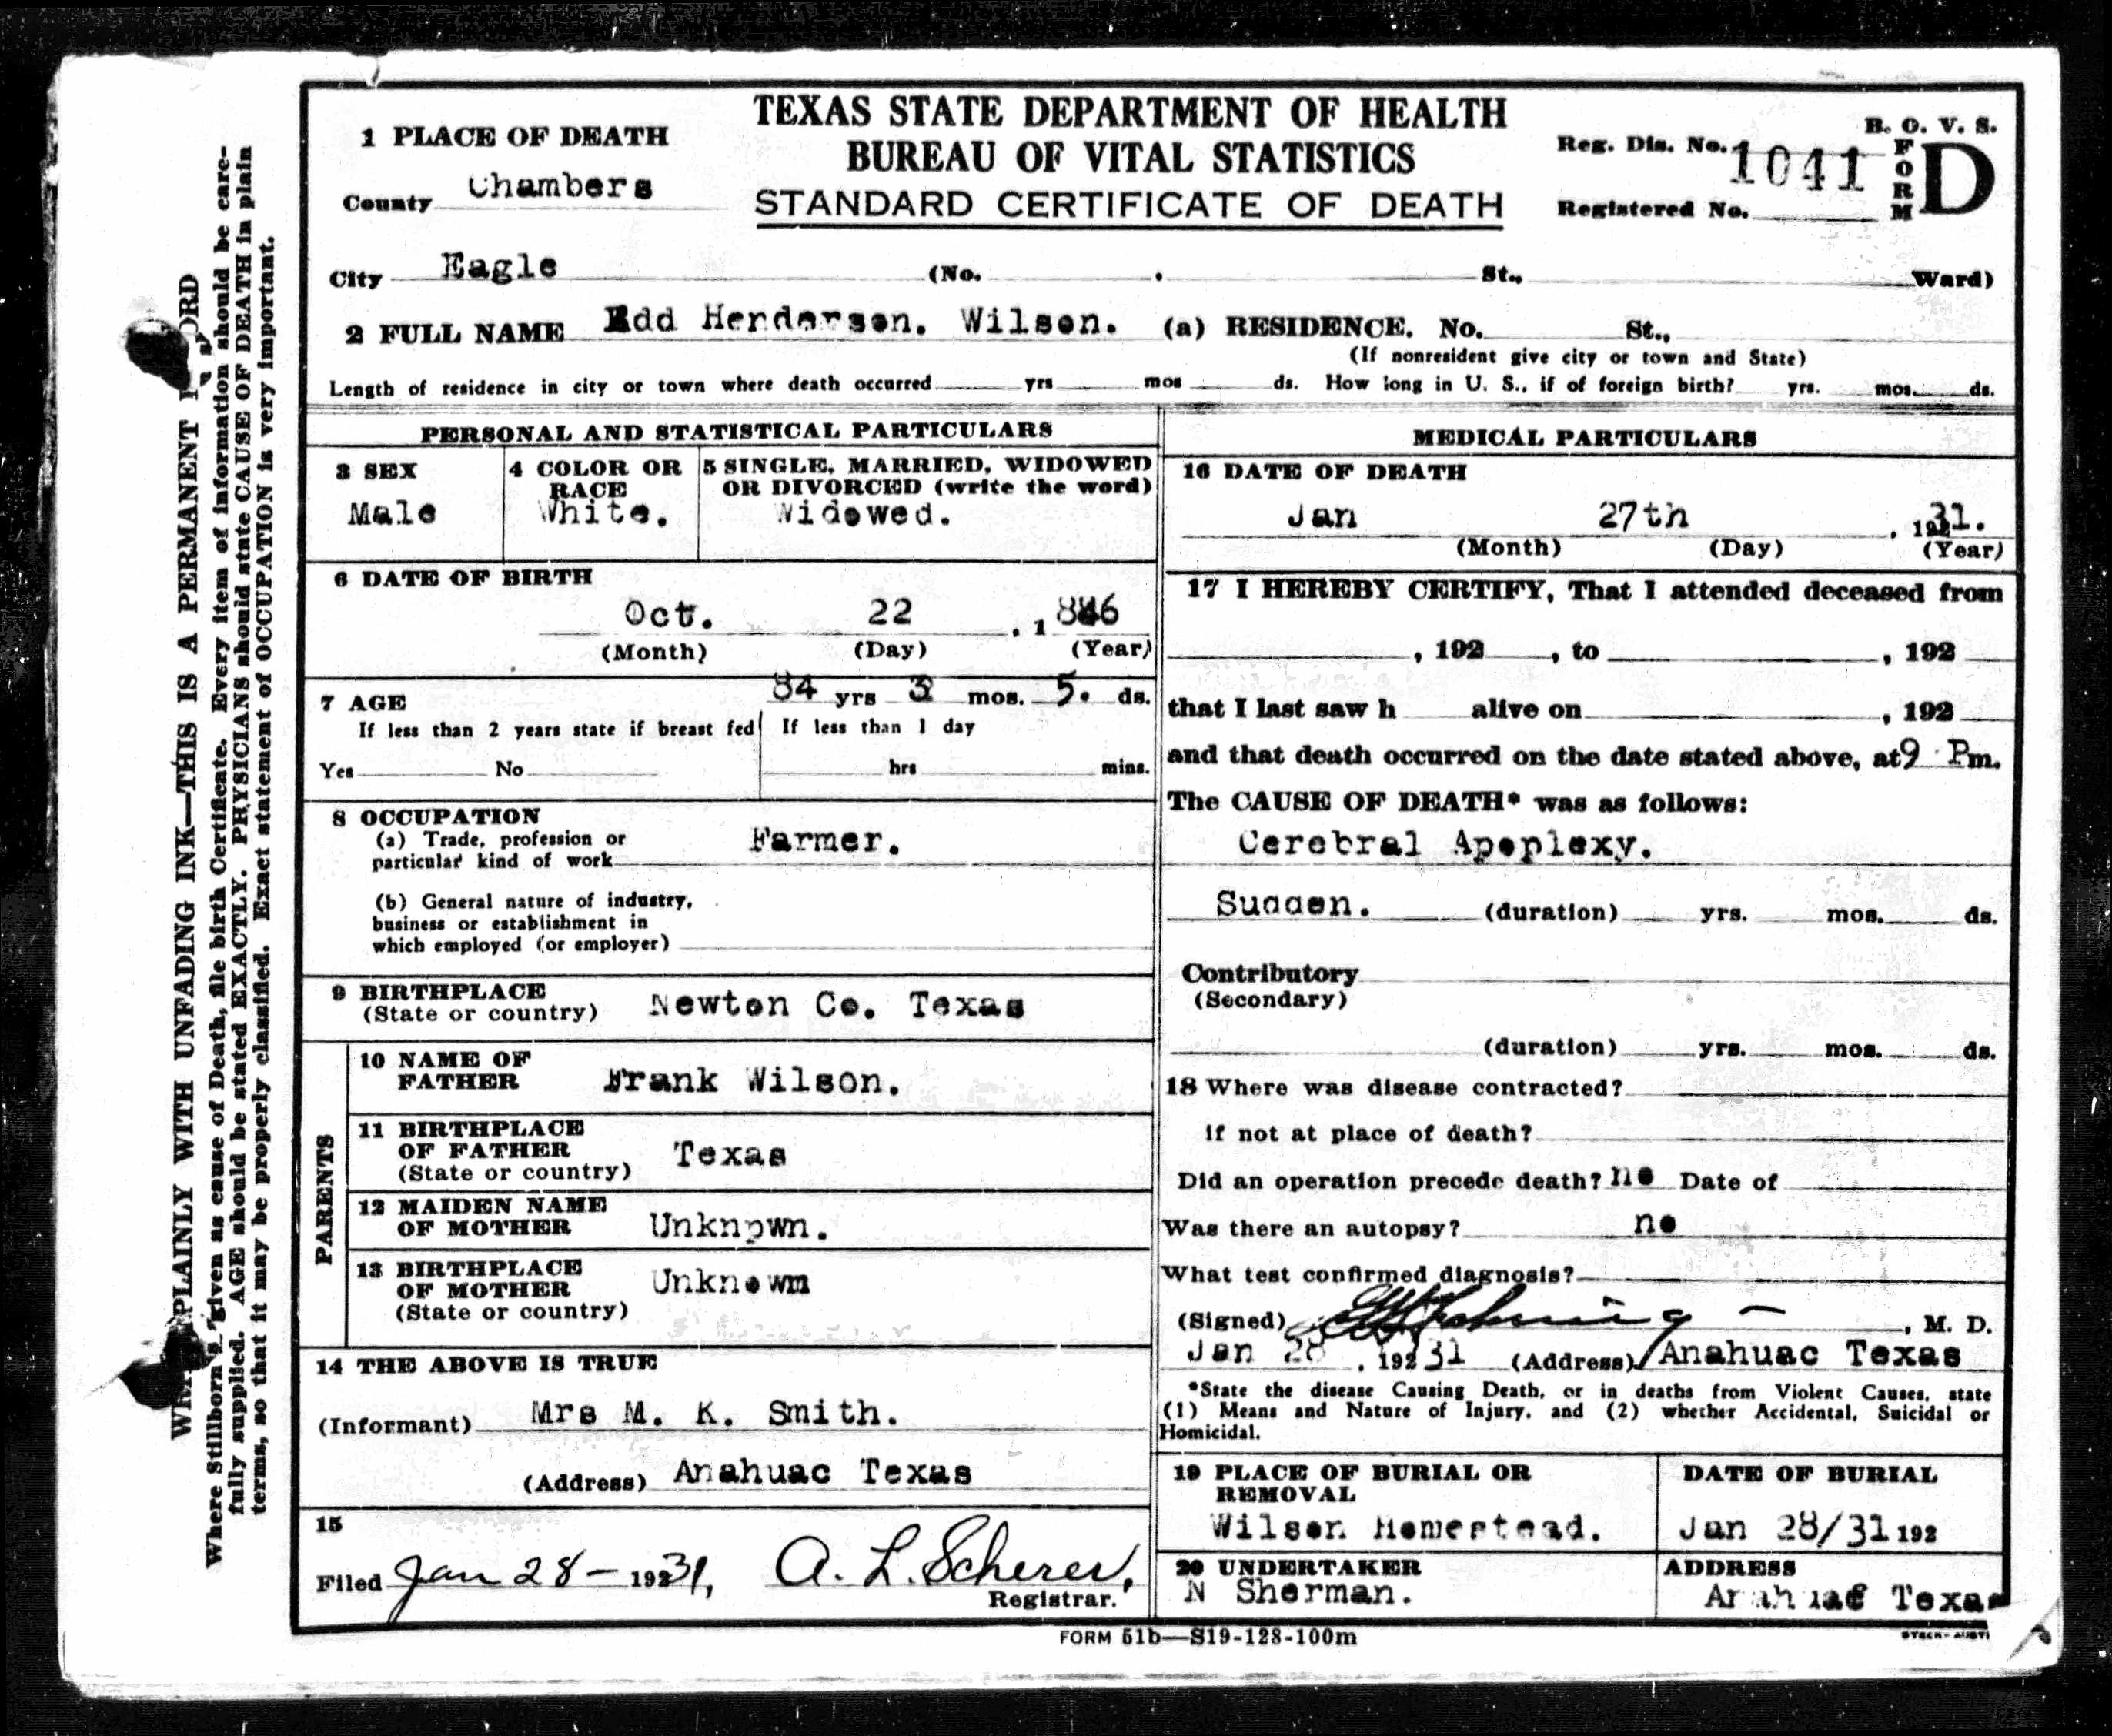 TEXAS STATE DEPARTMENT OF HEALTH
BUREAU OF VITAL STATISTICS
STANDARD CERTIFICATE OF DEATH
B. O. V. S.
FORM D
Reg. Dis. No. 1041
Registered No.
1 PLACE OF DEATH
County Chambers
City Eagle (No. . St., Ward)
2 FULL NAME Edd Henderson. Wilson. (a) RESIDENCE. No. St.,
(If nonresident give city or town and State)
Length of residence in city or town where death occurred yrs mos ds. How long in U. S., if of foreign birth? yrs. mos. ds.
PERSONAL AND STATISTICAL PARTICULARS
3 SEX
Male
4 COLOR OR RACE
White.
5 SINGLE, MARRIED, WIDOWED
OR DIVORCED (write the word)
Widowed.
6 DATE OF BIRTH
Oct. 22 , 1846
(Month) (Day) (Year)
7 AGE 84 yrs 3 mos. 5. ds.
If less than 2 years state if breast fed
Yes No
If less than 1 day
hrs mins.
8 OCCUPATION
(a) Trade, profession or
particular kind of work Farmer.
(b) General nature of industry,
business or establishment in
which employed (or employer)
9 BIRTHPLACE
(State or country) Newton Co. Texas
PARENTS
10 NAME OF
FATHER Frank Wilson.
11 BIRTHPLACE
OF FATHER
(State or country) Texas
12 MAIDEN NAME
OF MOTHER Unknown.
13 BIRTHPLACE
OF MOTHER
(State or country) Unknown
14 THE ABOVE IS TRUE
(Informant) Mrs M. K. Smith.
(Address) Anahuac Texas
15
Filed Jan 28 - 1931, A. L. Scherer,
Registrar.
MEDICAL PARTICULARS
16 DATE OF DEATH
Jan 27th , 1931.
(Month) (Day) (Year)
17 I HEREBY CERTIFY, That I attended deceased from
, 192 , to , 192
that I last saw h alive on , 192
and that death occurred on the date stated above, at 9 Pm.
The CAUSE OF DEATH* was as follows:
Cerebral Apoplexy.
Sudden. (duration) yrs. mos. ds.
Contributory
(Secondary)
(duration) yrs. mos. ds.
18 Where was disease contracted?
if not at place of death?
Did an operation precede death? no Date of
Was there an autopsy? no
What test confirmed diagnosis?
(Signed) , M. D.
Jan 28 , 19231 (Address) Anahuac Texas
*State the disease Causing Death, or in deaths from Violent Causes, state
(1) Means and Nature of Injury, and (2) whether Accidental, Suicidal or
Homicidal.
19 PLACE OF BURIAL OR
REMOVAL
Wilson Homestead.
DATE OF BURIAL
Jan 28/31 192
20 UNDERTAKER
N Sherman.
ADDRESS
Anahuac Texas
FORM 51b—S19-128-100m
PLAINLY WITH UNFADING INK—THIS IS A PERMANENT
Where Stillborn is given as cause of Death, file birth Certificate. Every item of information should be care-
fully supplied. AGE should be stated EXACTLY. PHYSICIANS should state CAUSE OF DEATH in plain
terms, so that it may be properly classified. Exact statement of OCCUPATION is very important.